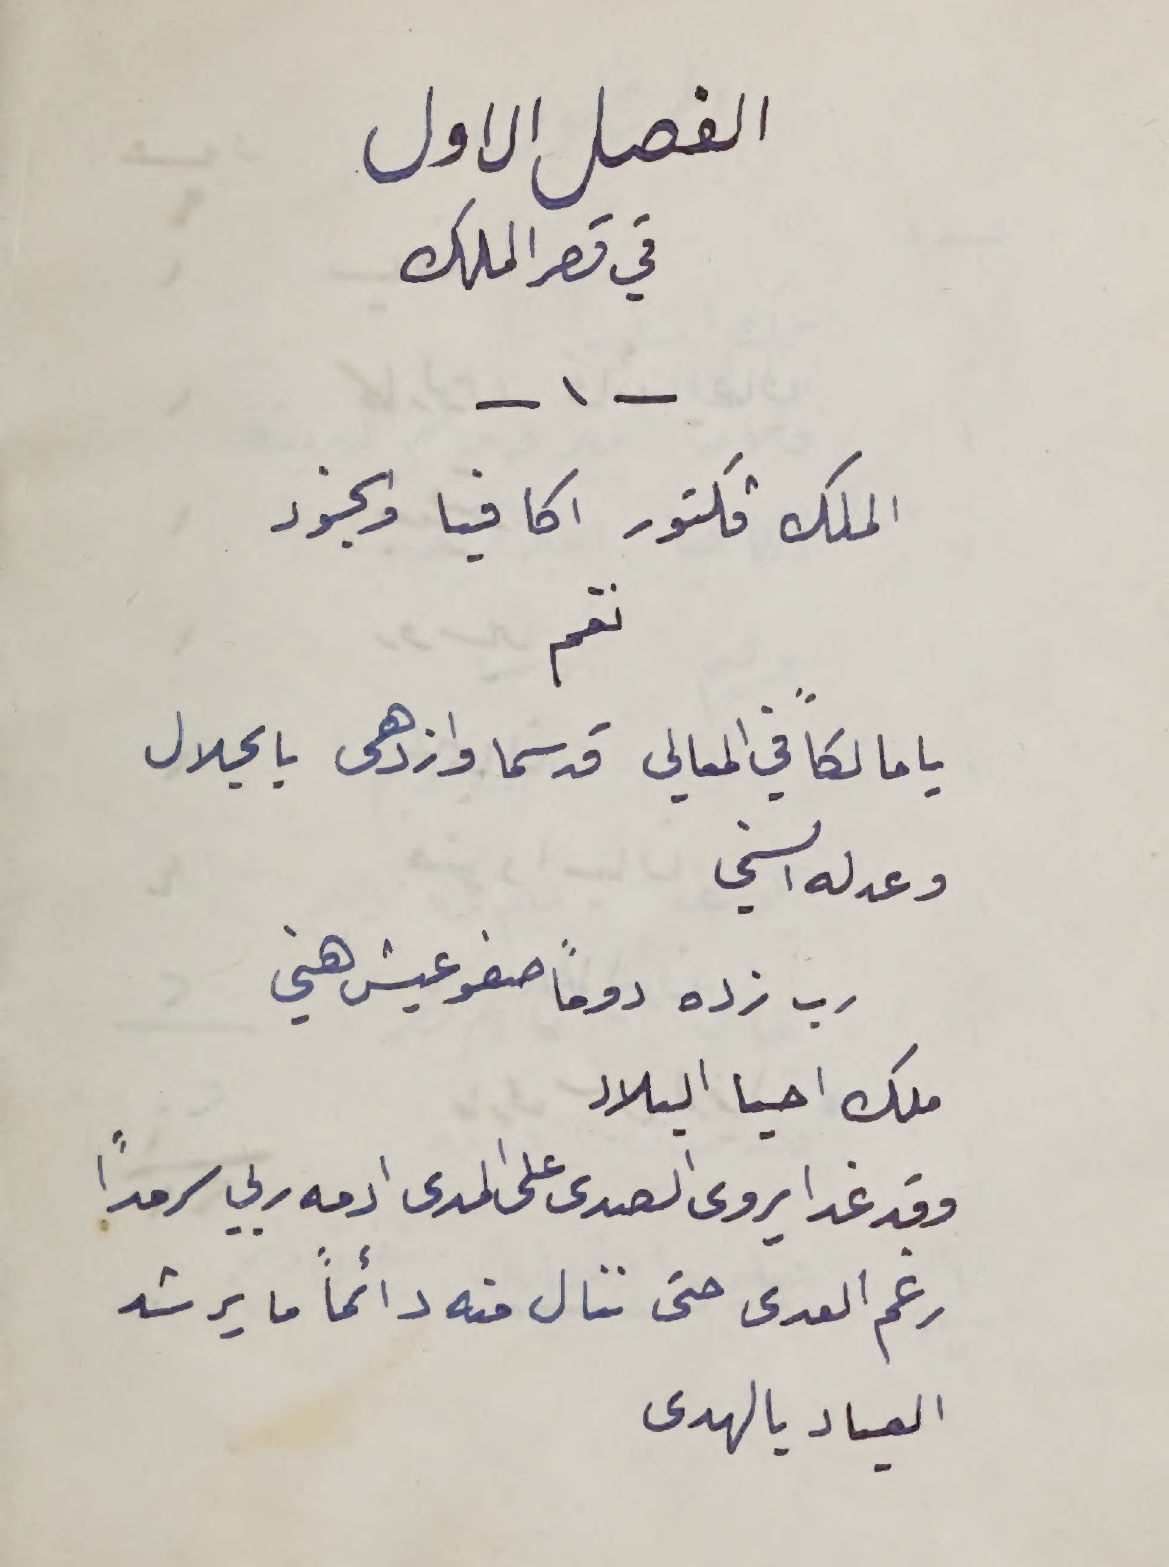 الفصل الاول
في قصر الملك
— ١ —
الملك ڤكتور اكافيا والجنود
نغم
يا مالكاً في المعالي قد سما وازدهى بالجلال
وعدله السني
رب زده دوماً صفو عيش هني
ملك احيا البلاد
وقد غدا يروى الصدى على المدى ادمه ربي سرمداً
رغم العدى حتى ننال منه دائماً ما يرشد
العباد بالهدى